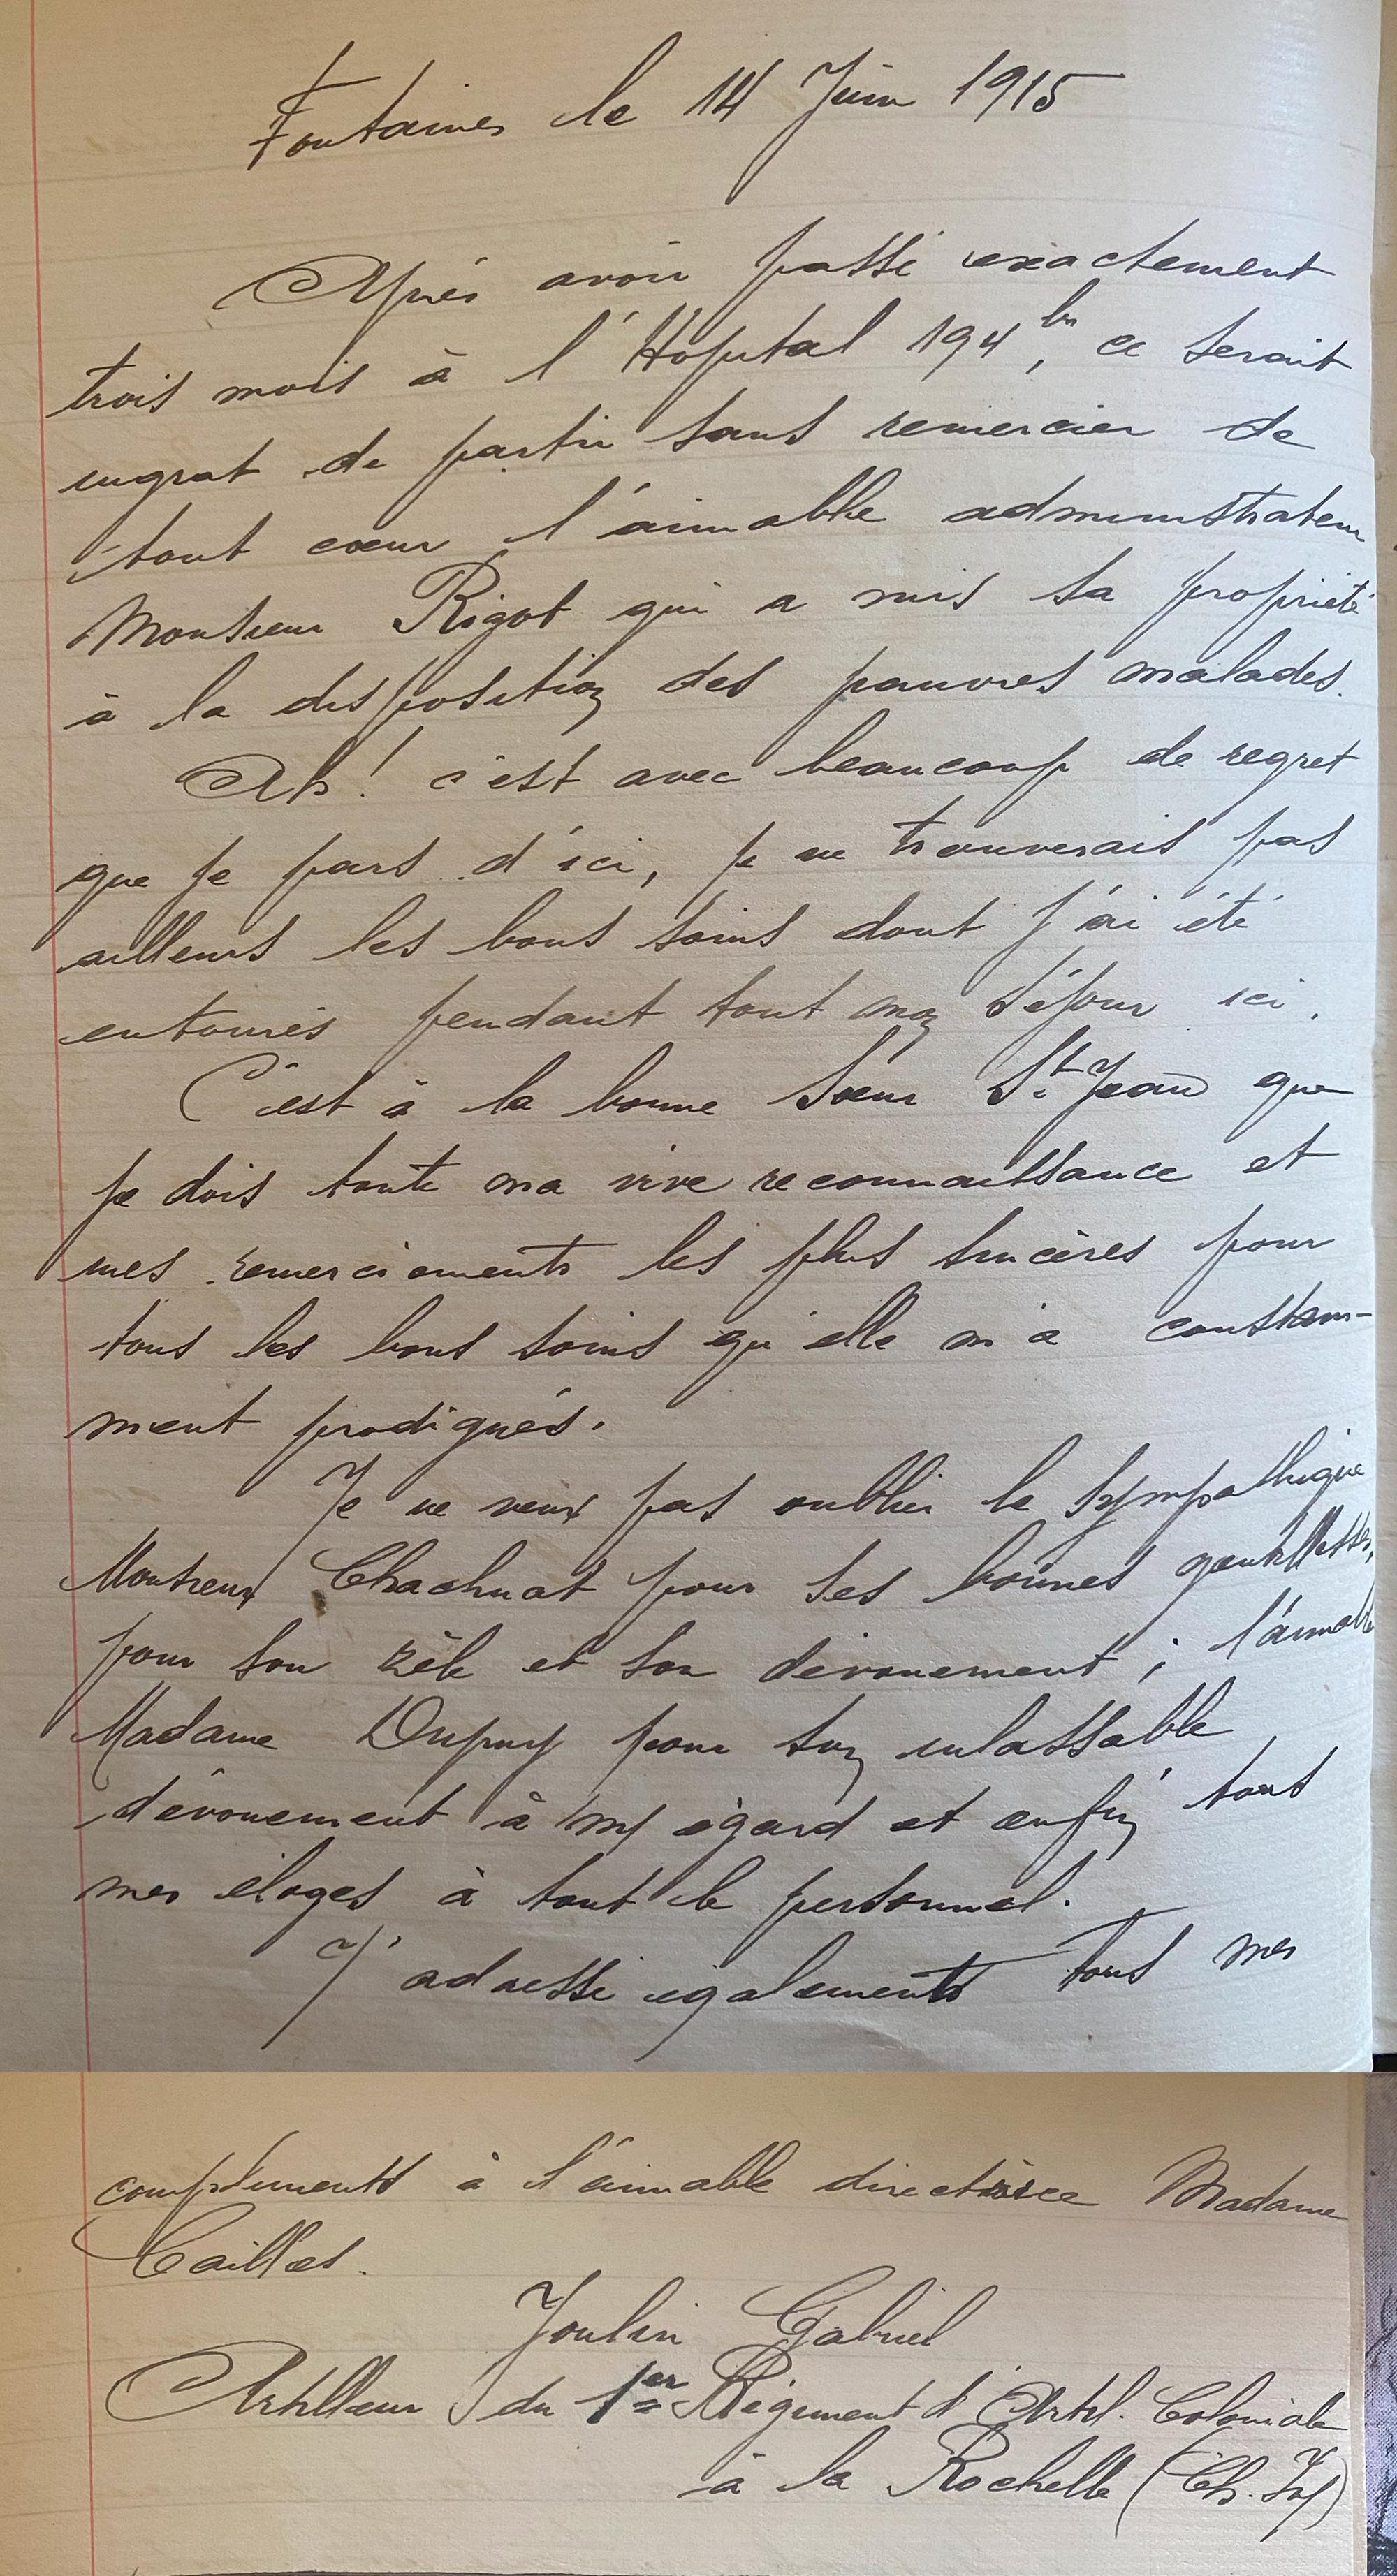 Fontaines le 14 Juin 1915
Après avoir passé exactement
trois mois à l'Hôpital 194 bis, ce serait
ingrat de partir sans remercier de
tout cœur l'aimable administrateur
Monsieur Rigot qui a mis sa propriété
à la disposition des pauvres malades.
Ah! c'est avec beaucoup de regret
que je pars d'ici, je ne trouverais pas
ailleurs les bons soins dont j'ai été
entourés pendant tout mon séjour ici.
C'est à la bonne Sœur St Jean que
je dois toute ma vive reconnaissance et
mes remerciements les plus sincères pour
tous les bons soins qu'elle m'a constam-
ment prodigués.
Je ne veux pas oublier le sympathique
Monsieur Chachuat pour ses bonnes gentillesses,
pour son zèle et son dévouement ; l'aimable
Madame Dupuy pour son inlassable
dévouement à my égard et enfin tous
mes éloges à tout le personnel.
J'adresse également tous mes
compliments à l'aimable directrice Madame
Cailles.
Joulin Gabriel
Artilleur du 1er Régiment d'Artil. Coloniale
à la Rochelle (Ch. Inf)